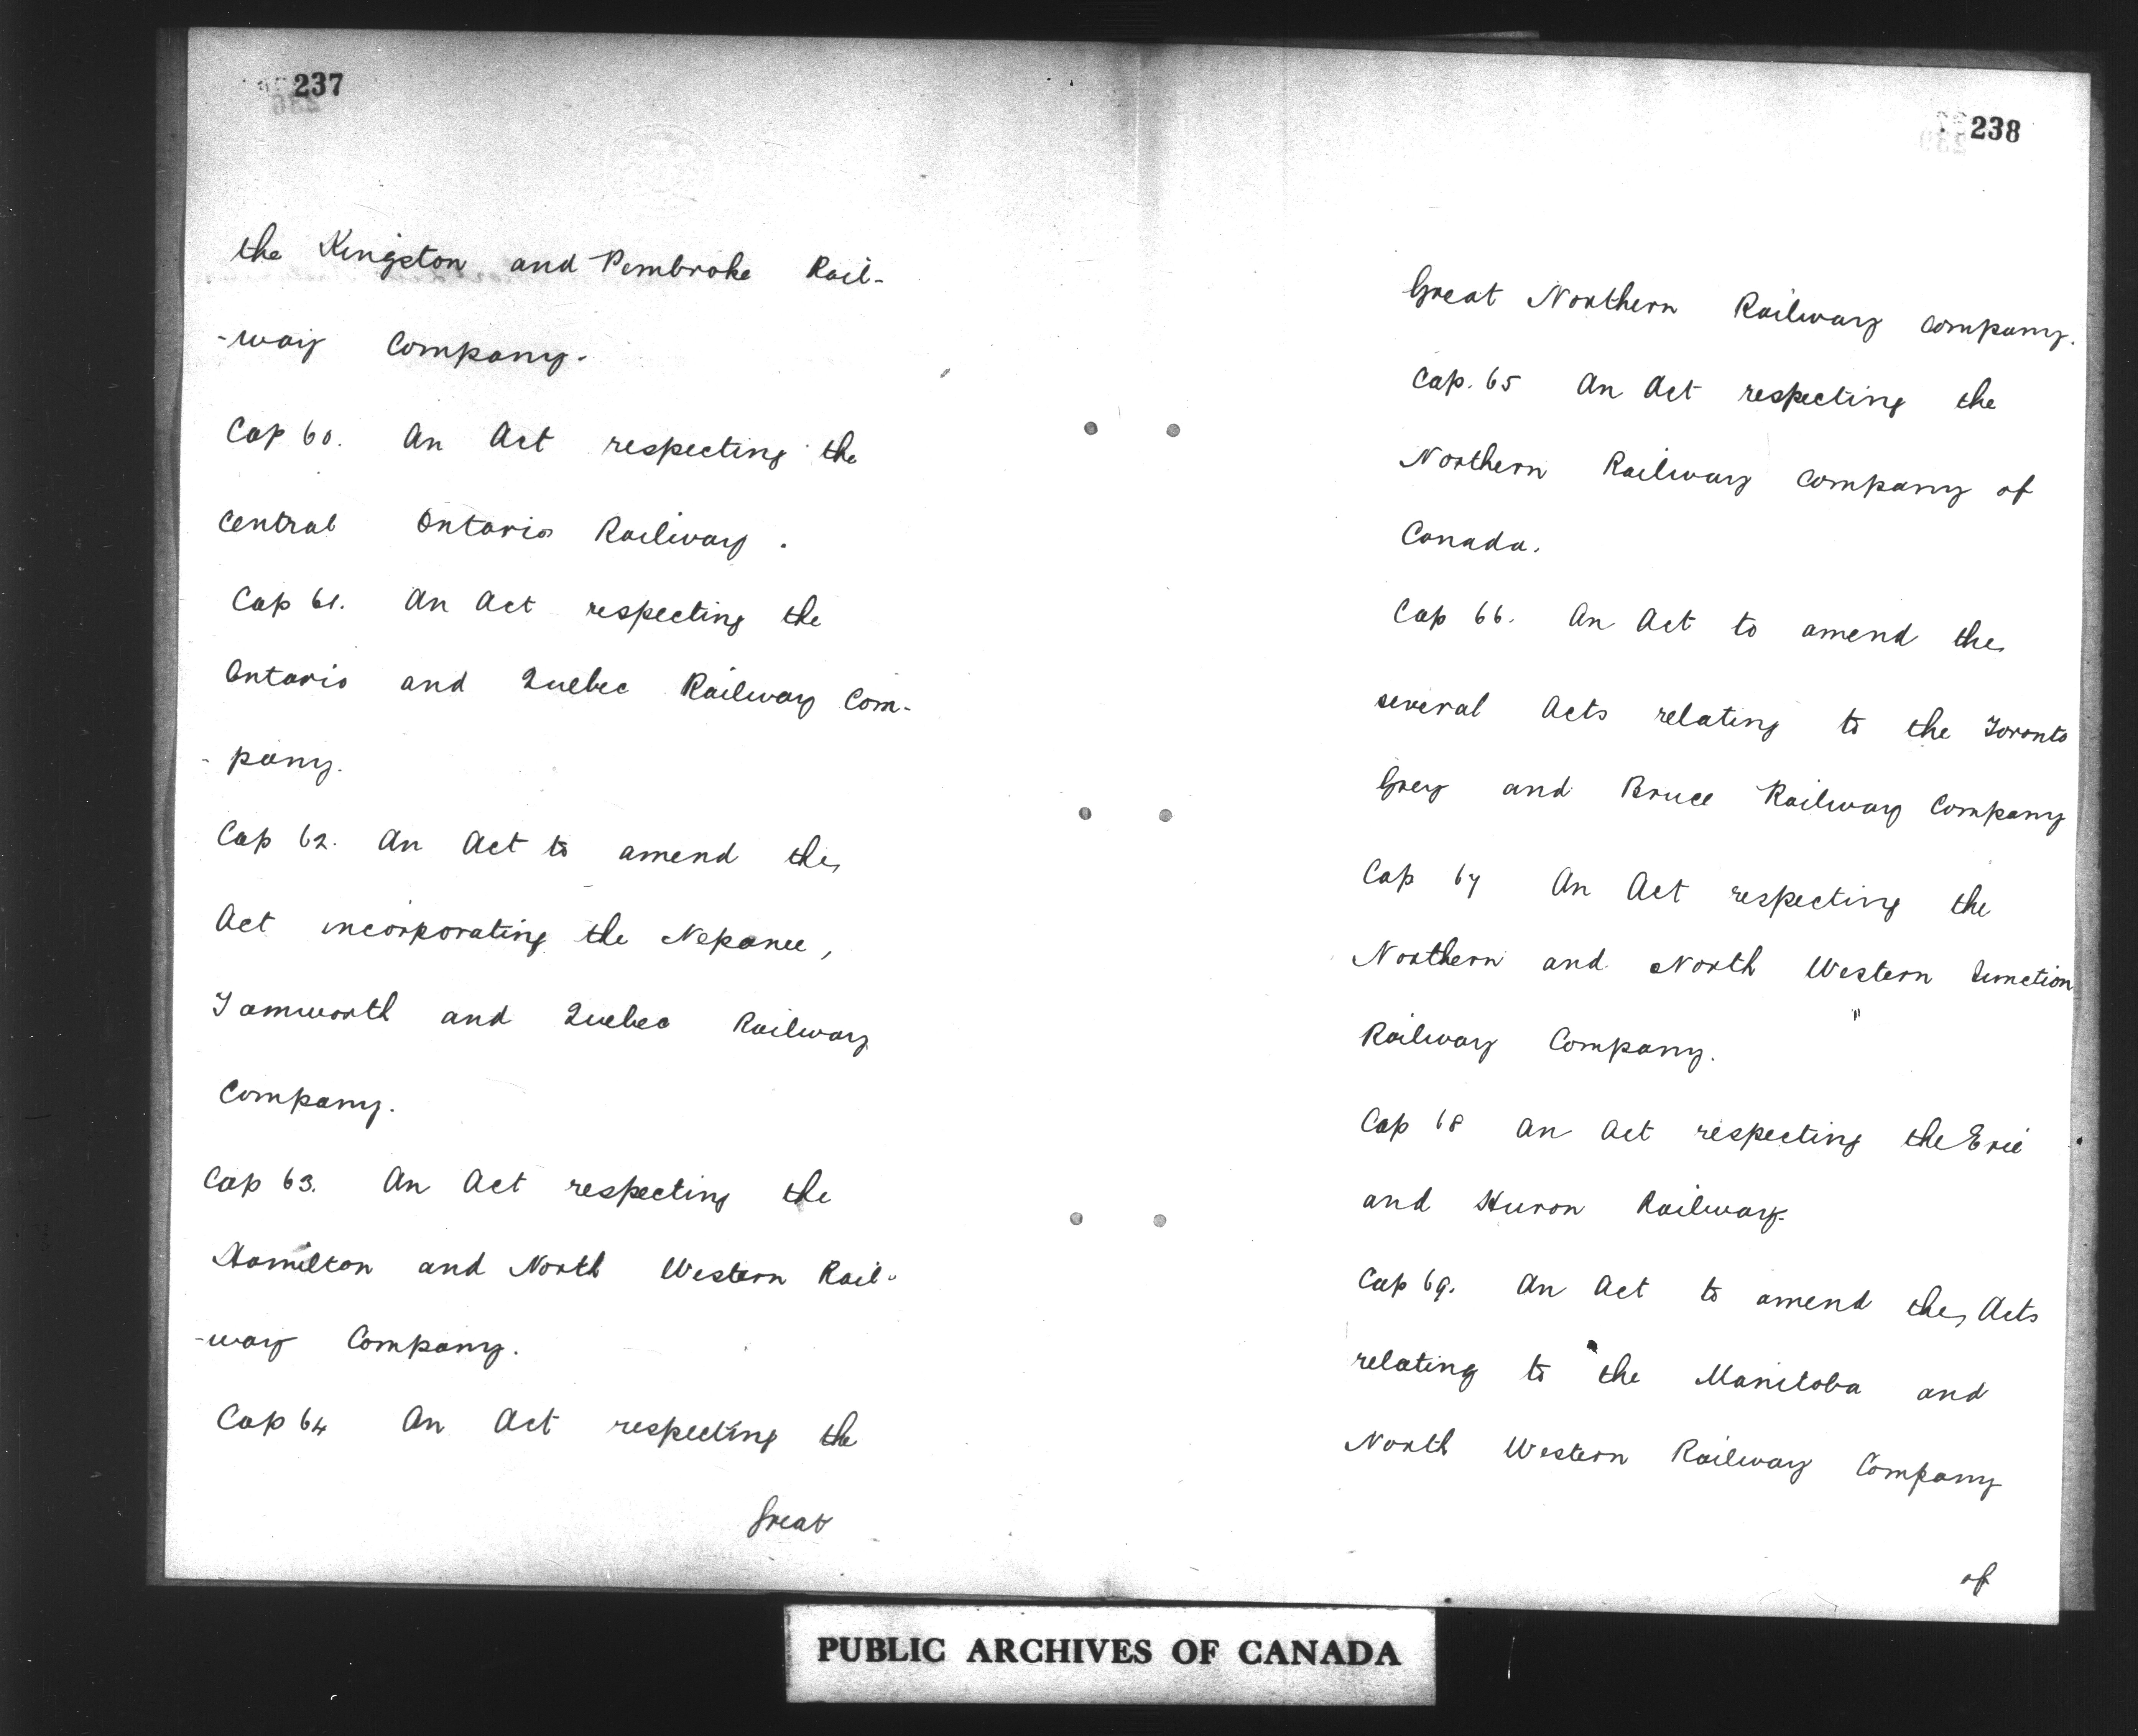 237
the Kingston and Pembroke Rail-
-way Company.
Cap 60. An Act respecting the
Central Ontario Railway.
Cap 61. An Act respecting the
Ontario and Quebec Railway Com-
-pany.
Cap 62. An Act to amend the
Act incorporating the Nepanee,
Tamworth and Quebec Railway
Company.
Cap 63. An Act respecting the
Hamilton and North Western Rail-
-way Company.
Cap 64 An Act respecting the
Great
238
Great Northern Railway Company.
Cap. 65 An Act respecting the
Northern Railway Company of
Canada.
Cap 66. An Act to amend the
several Acts relating to the Toronto
Grey and Bruce Railway Company
Cap 67 An Act respecting the
Northern and North Western Junction
Railway Company.
Cap 68 An Act respecting the Erie
and Huron Railway.
Cap 69. An Act to amend the Acts
relating to the Manitoba and
North Western Railway Company
of
PUBLIC ARCHIVES OF CANADA